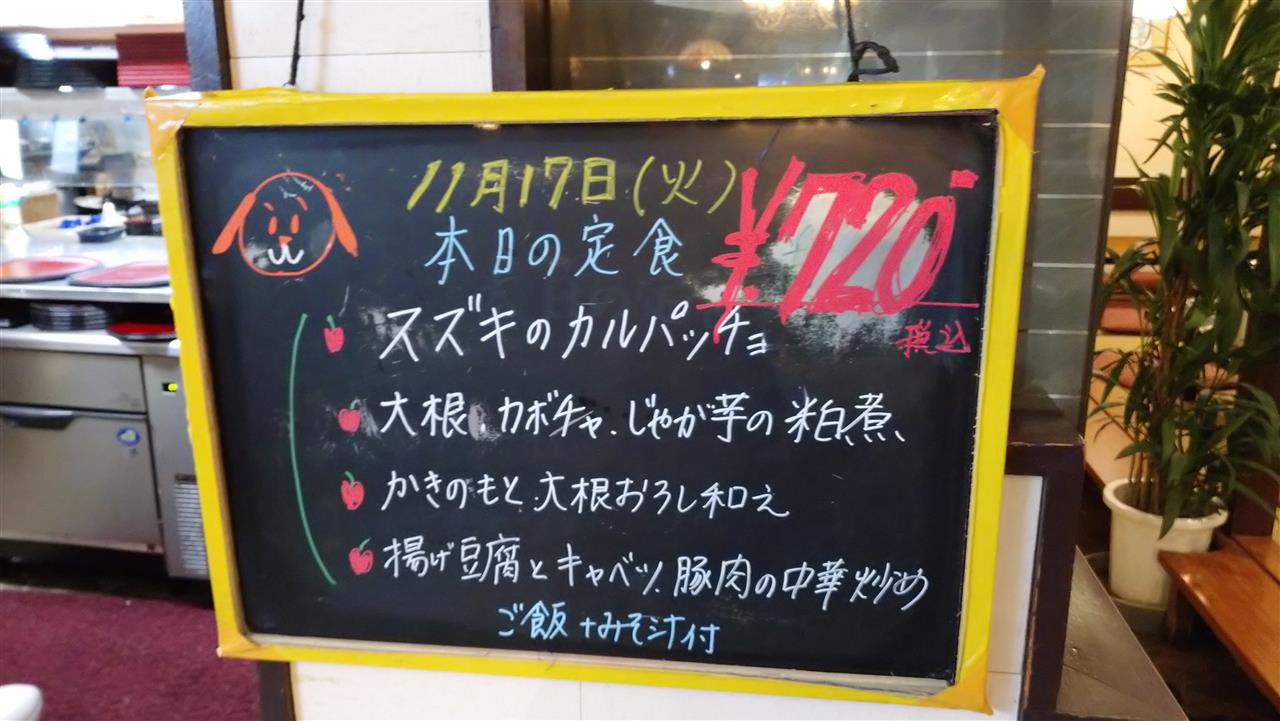 11月17日(火)
¥720
本日の定食
税込
スズキのカルパッチョ
大根、カボチャ、じゃが芋の粕煮
かきのもと、大根おろし和え
揚げ豆腐とキャベツ、豚肉の中華炒め
ご飯+みそ汁付